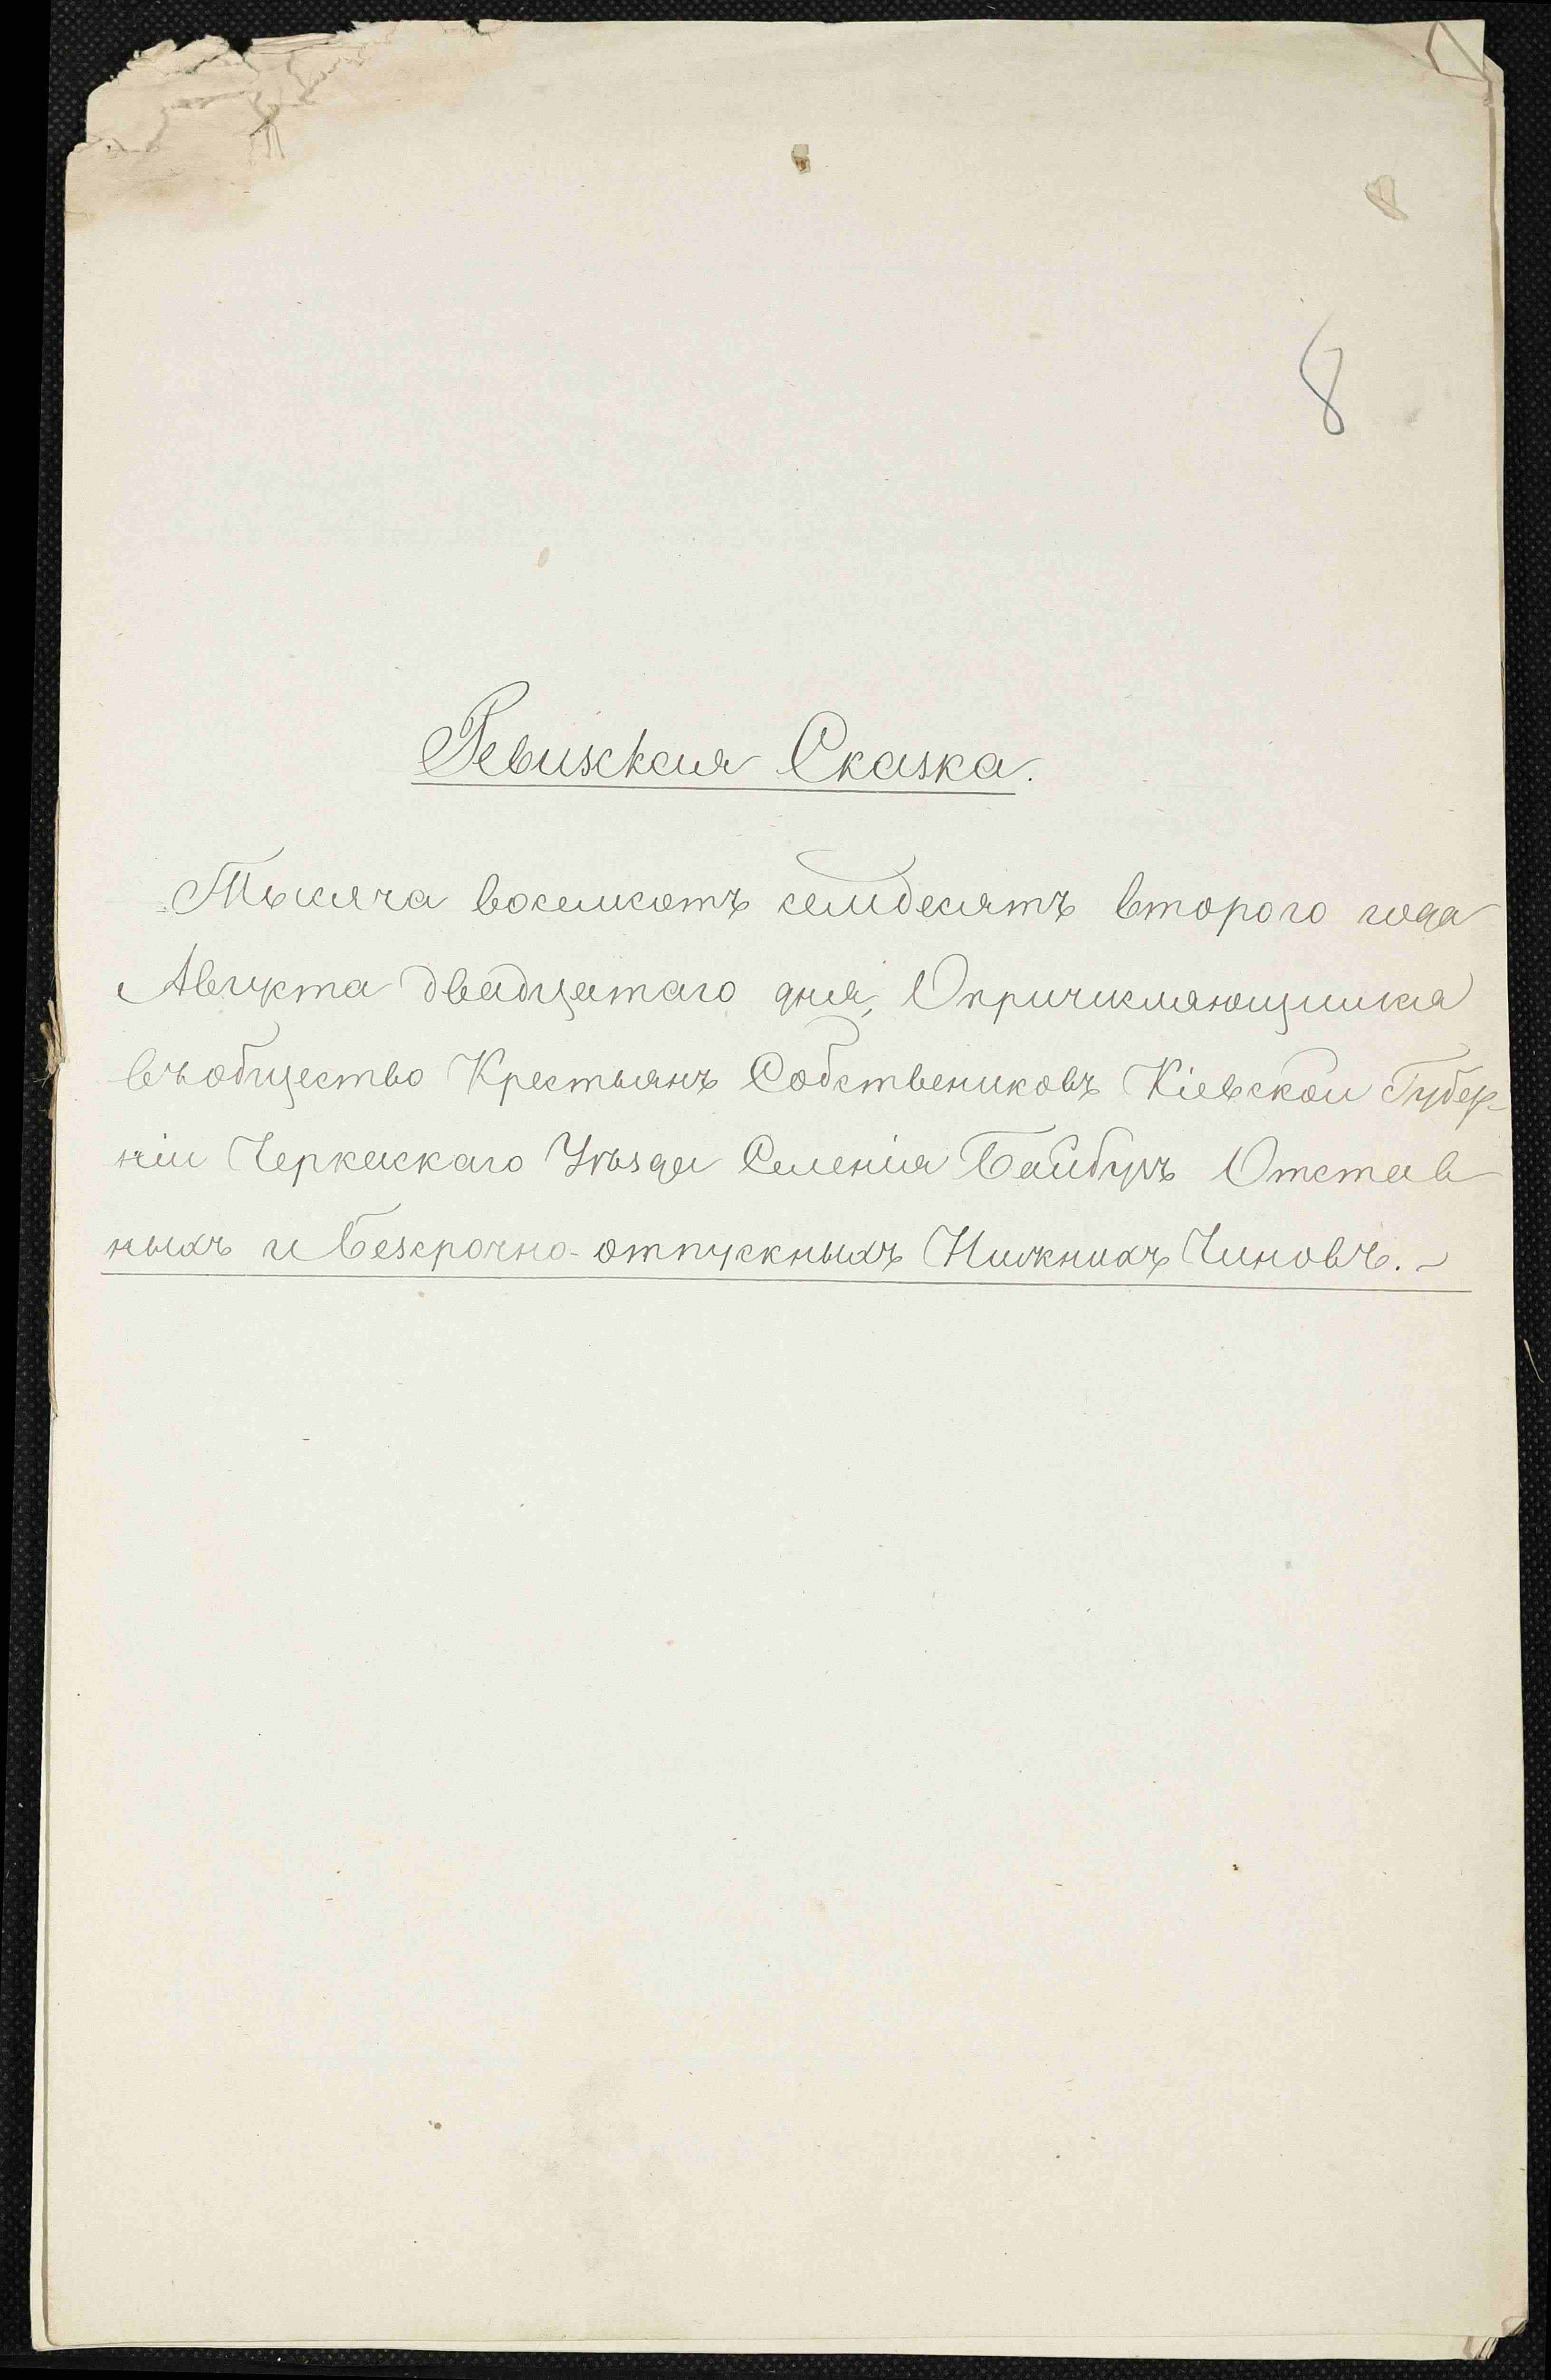 8
8
Ревизская Сказка.
Тысяча восемсотъ семдесятъ втораго года
Августа двадцатаго дня, Опричисляющихся
въ общество Крестьянъ Собствениковъ Кіевской Губер-
ніи Черкаскаго Уѣзда Селенія Байбузъ Отстав
ныхъ и безсрочно-отпускныхъ Нижнихъ Чиновъ. -